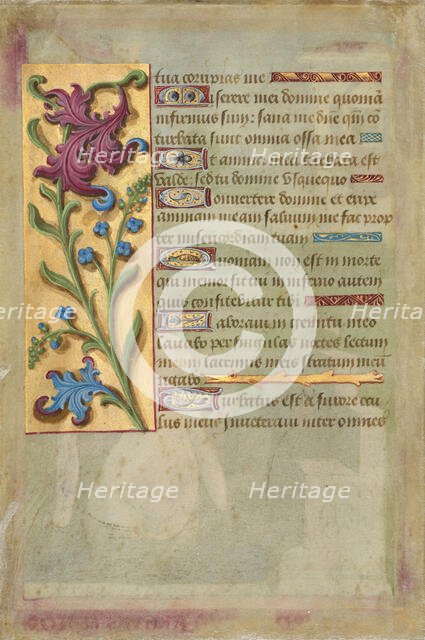 tua corripias me
Miserere mei domine quoniā
infirmus sum: sana me dñe qm̄ cō
turbata sunt omnia ossa mea
Et anima mea turbata est
valde: sed tu domine Vsquequo
Convertere domine et eripe
animam meam saluum me fac prop
ter misericordiam tuam
Quoniam non est in morte
qui memor sit tui in inferno autem
quis confitebitur tibi
Laboravi in gemitu meo
lavabo per singulas noctes lectum
meum lacrimis meis stratum meū
rigabo
Turbatus est de furore ocu
lus meus inveteravi inter omnes
Heritage
Heritage
Heritage
Heritage
Heritage
Heritage
Heritage
Heritage